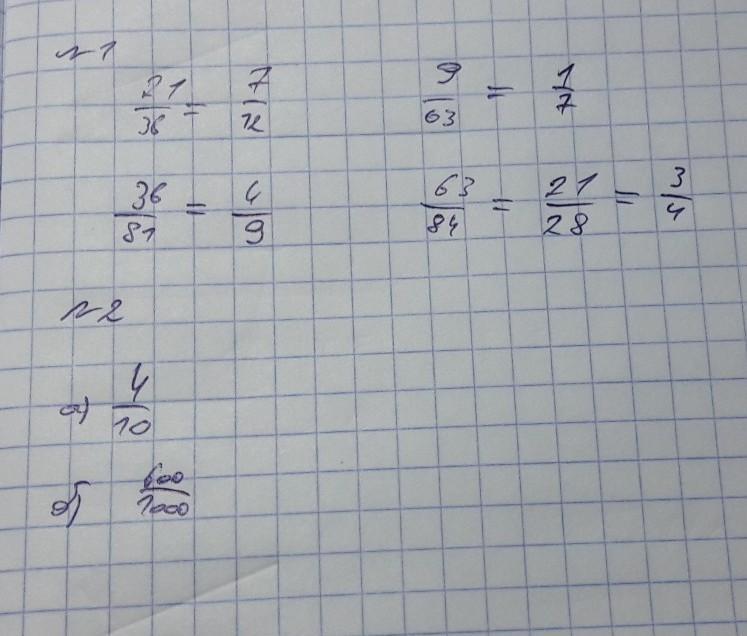 №1
21/36 = 7/12   9/63 = 1/7
36/81 = 4/9   63/84 = 21/28 = 3/4
№2
а) 4/10
б) 600/1000